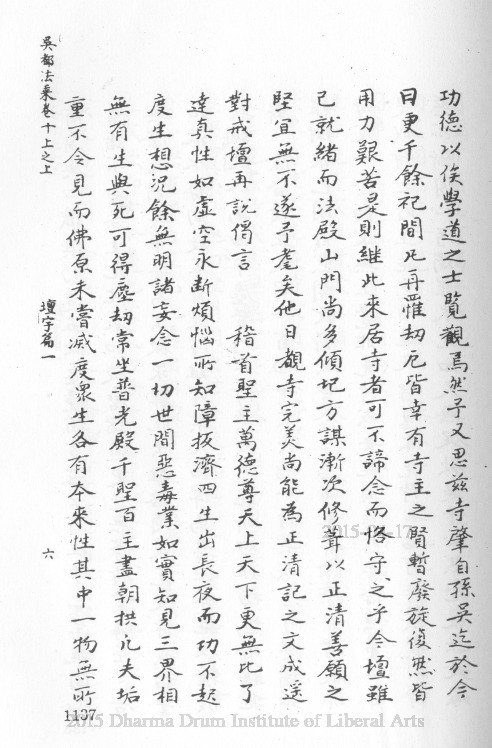 功德以俟學道之士覽觀焉然予又思兹寺肇自孫吳迄於今
日更千餘祀間凡再罹劫厄皆幸有寺主之賢暫廢旋復然皆
用力艱苦是則繼此來居寺者可不諦念而恪守之乎今壇雖
已就緒而法殿山門尚多傾圮方謀漸次修葺以正清善願之
堅宜無不遂予耄矣他日觀寺完美尚能為正清記之文成遥
對戒壇再說偈言 稽首聖主萬德尊天上天下更無比了
達真性如虛空永斷煩惱所知障拔濟四生出長夜而功不起
度生想況餘無明諸妄念一切世間惡毒業如實知見三界相
無有生與死可得塵劫常坐普光殿千聖百主盡朝拱凡夫垢
重不令見而佛原未嘗滅度衆生各有本來性其中一物無所
吳都法乘卷十上之上
壇宇篇一
六
1137
2015-03-17
2015 Dharma Drum Institute of Liberal Arts